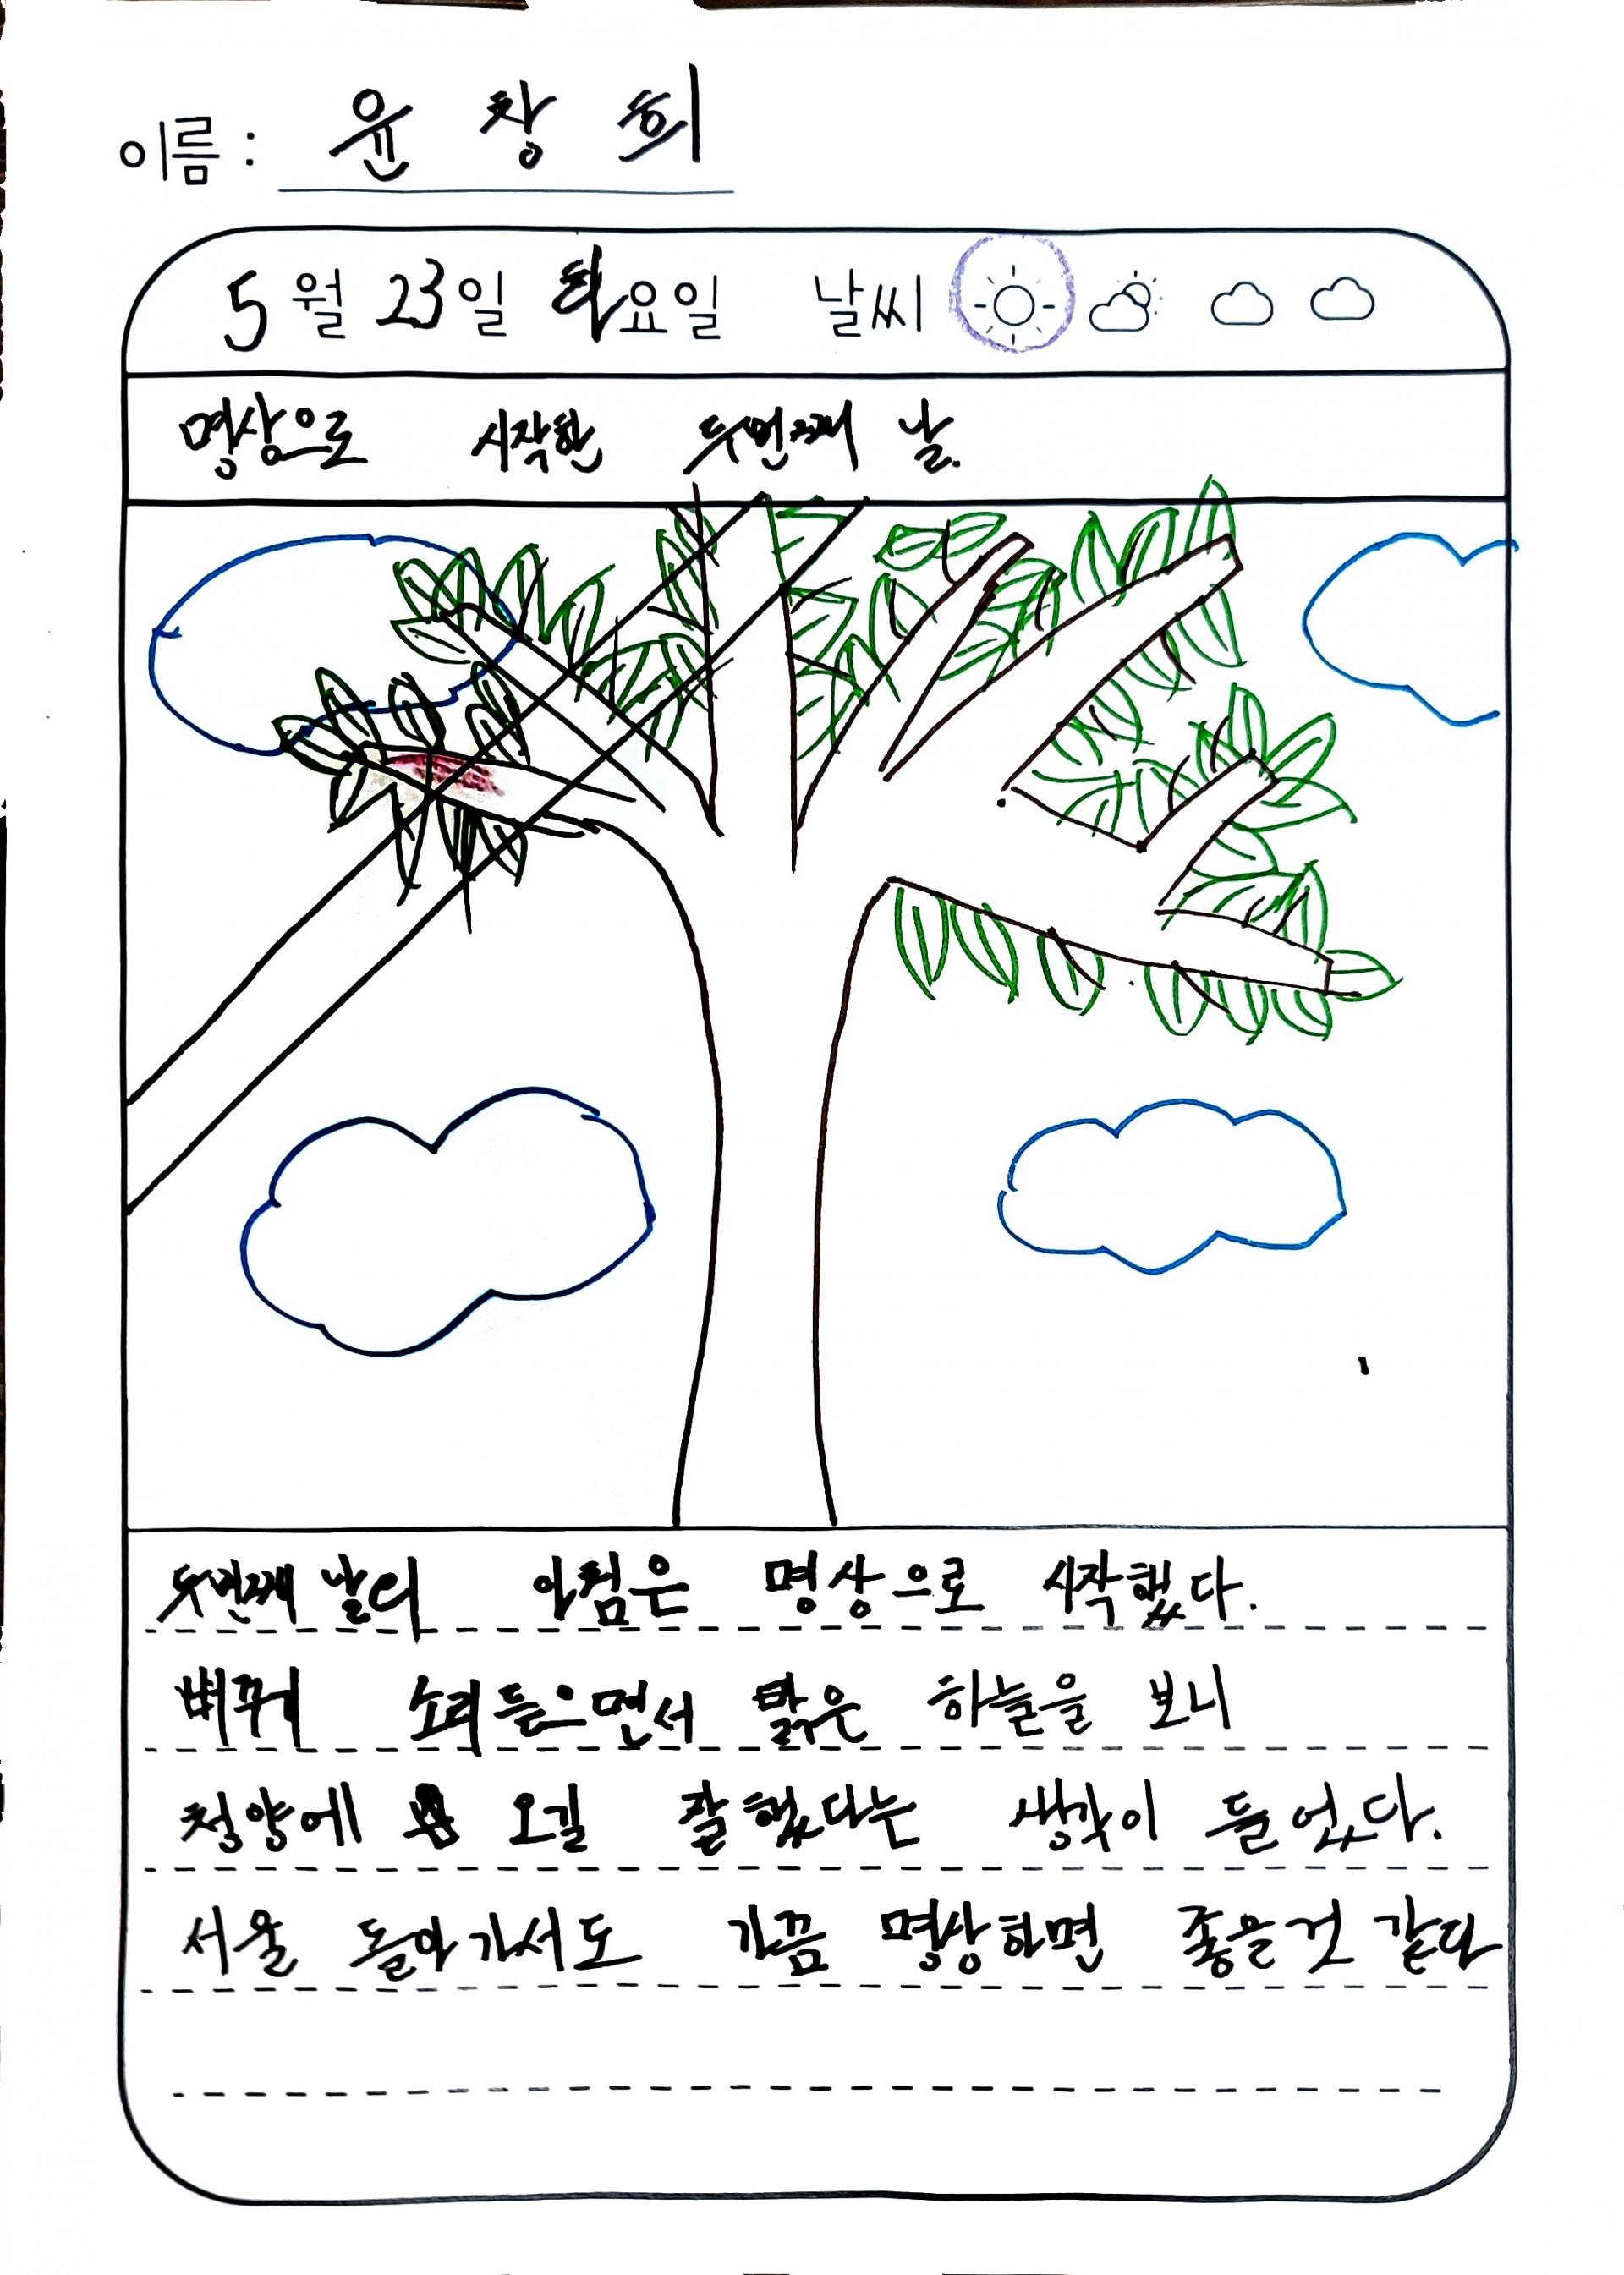 이름: 윤창희
5월 23일 화요일 날씨
명상으로 시작한 두번째 날.
두번째 날의 아침은 명상으로 시작했다.
뻐꾸기 소리들으면서 맑은 하늘을 보니
청양에 오길 잘했다는 생각이 들었다.
서울 돌아가서도 가끔 명상하면 좋을것 같다